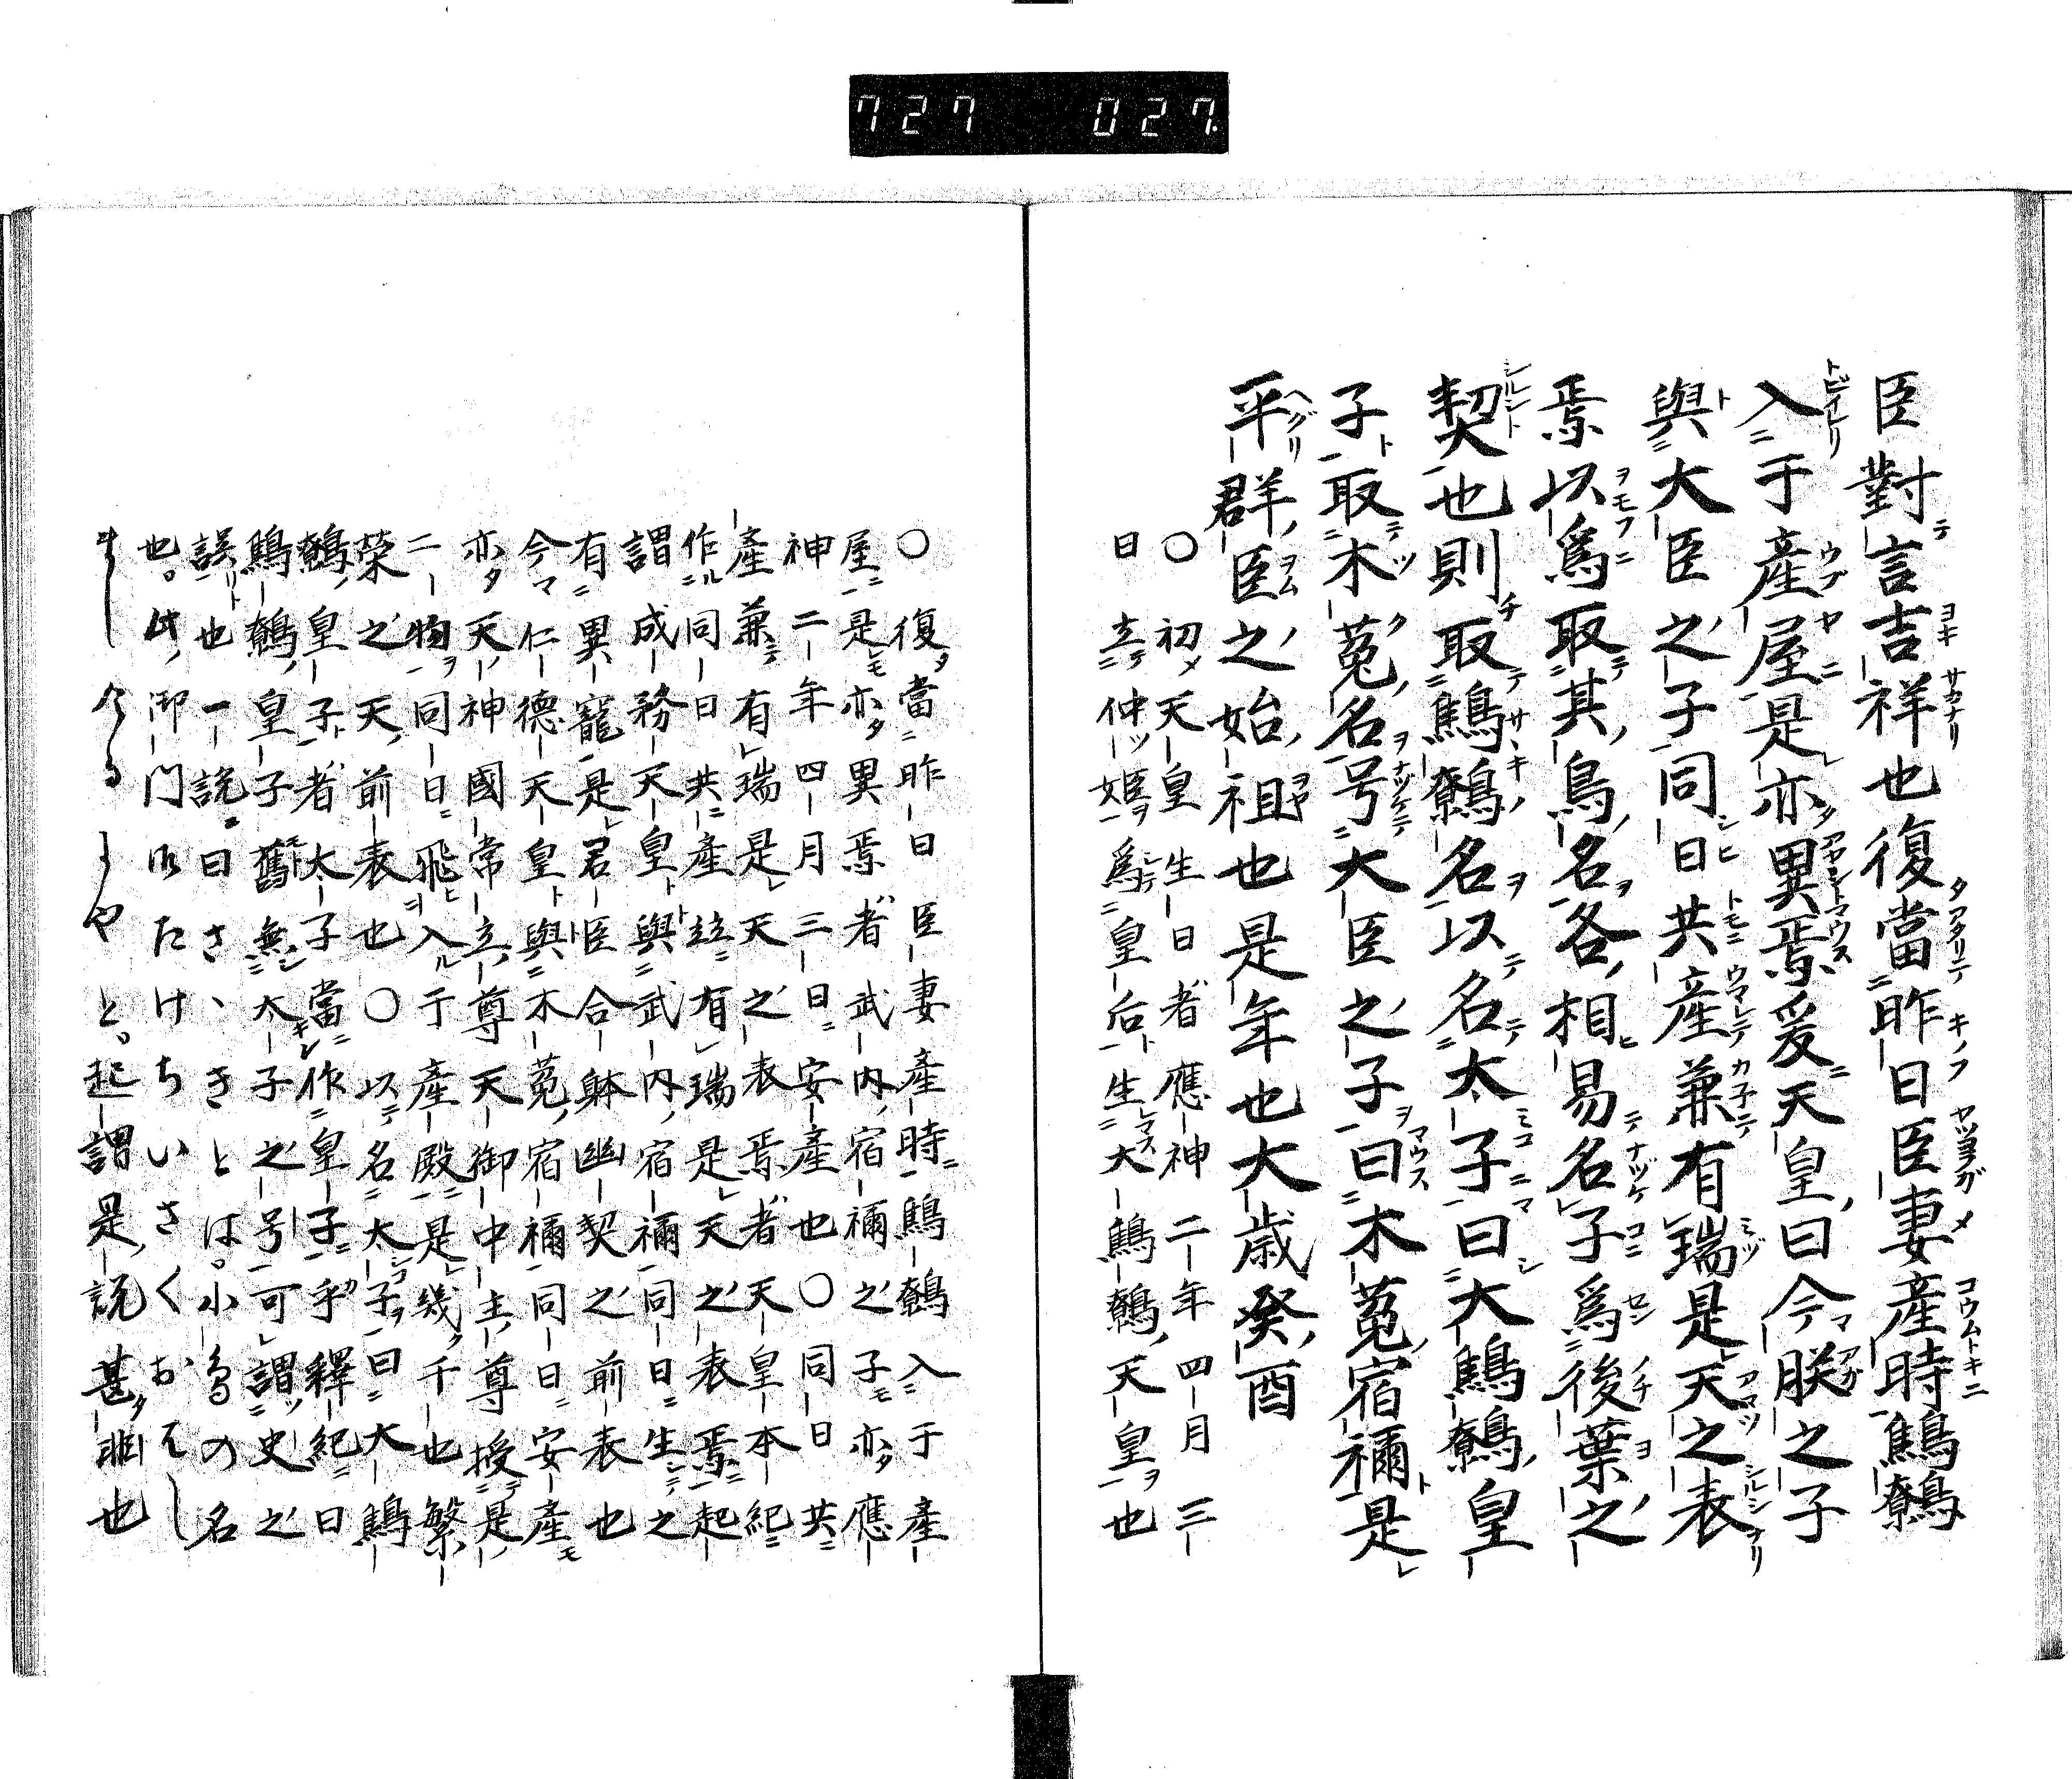 727 027
臣對言吉祥也復當昨日臣妻產時鷦鷯
入于產屋是亦異焉爰天皇曰今朕之子
與大臣之子同日共產兼有瑞是天之表
焉以爲取其鳥名各相易名子爲後葉之
契也則取鷦鷯名以名太子曰大鷦鷯皇
子取木菟名号大臣之子曰木菟宿禰是
平群臣之始祖也是年也大歲癸酉
○初天皇生日者應神二年四月三
日立仲姫爲皇后生大鷦鷯天皇也
○復當昨日臣妻產時鷦鷯入于產
屋是亦異焉者武内宿禰之子亦應
神二年四月三日安產也○同日共
產兼有瑞是天之表焉者天皇本紀
作同日共產竝有瑞是天之表焉起
謂成務天皇與武内宿禰同日生之
有異寵是君臣合躰幽契之前表也
今仁德天皇與木菟宿禰同日安產
亦天神國常立尊天御中主尊授是
二物同日飛入于產殿是幾千也繁
榮之天前表也○以名太子曰大鷦
鷯皇子者太子當作皇子乎釋紀曰
鷦鷯皇子舊無大子之号可謂史之
誤也一説曰さゝきとは小鳥の名
也此御門みたけちいさくおはし
ましけるにやと起謂是説甚非也